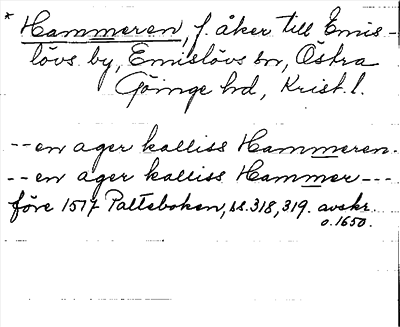 * Hammeren, f. åker till Emis-
lövs by, Emislövs sn, Östra
Göinge hd, Krist. l.
-- en ager kalliss Hammeren.
-- en ager kalliss Hammer ---
före 1517 Palteboken, ss. 318, 319. avskr.
o. 1650.